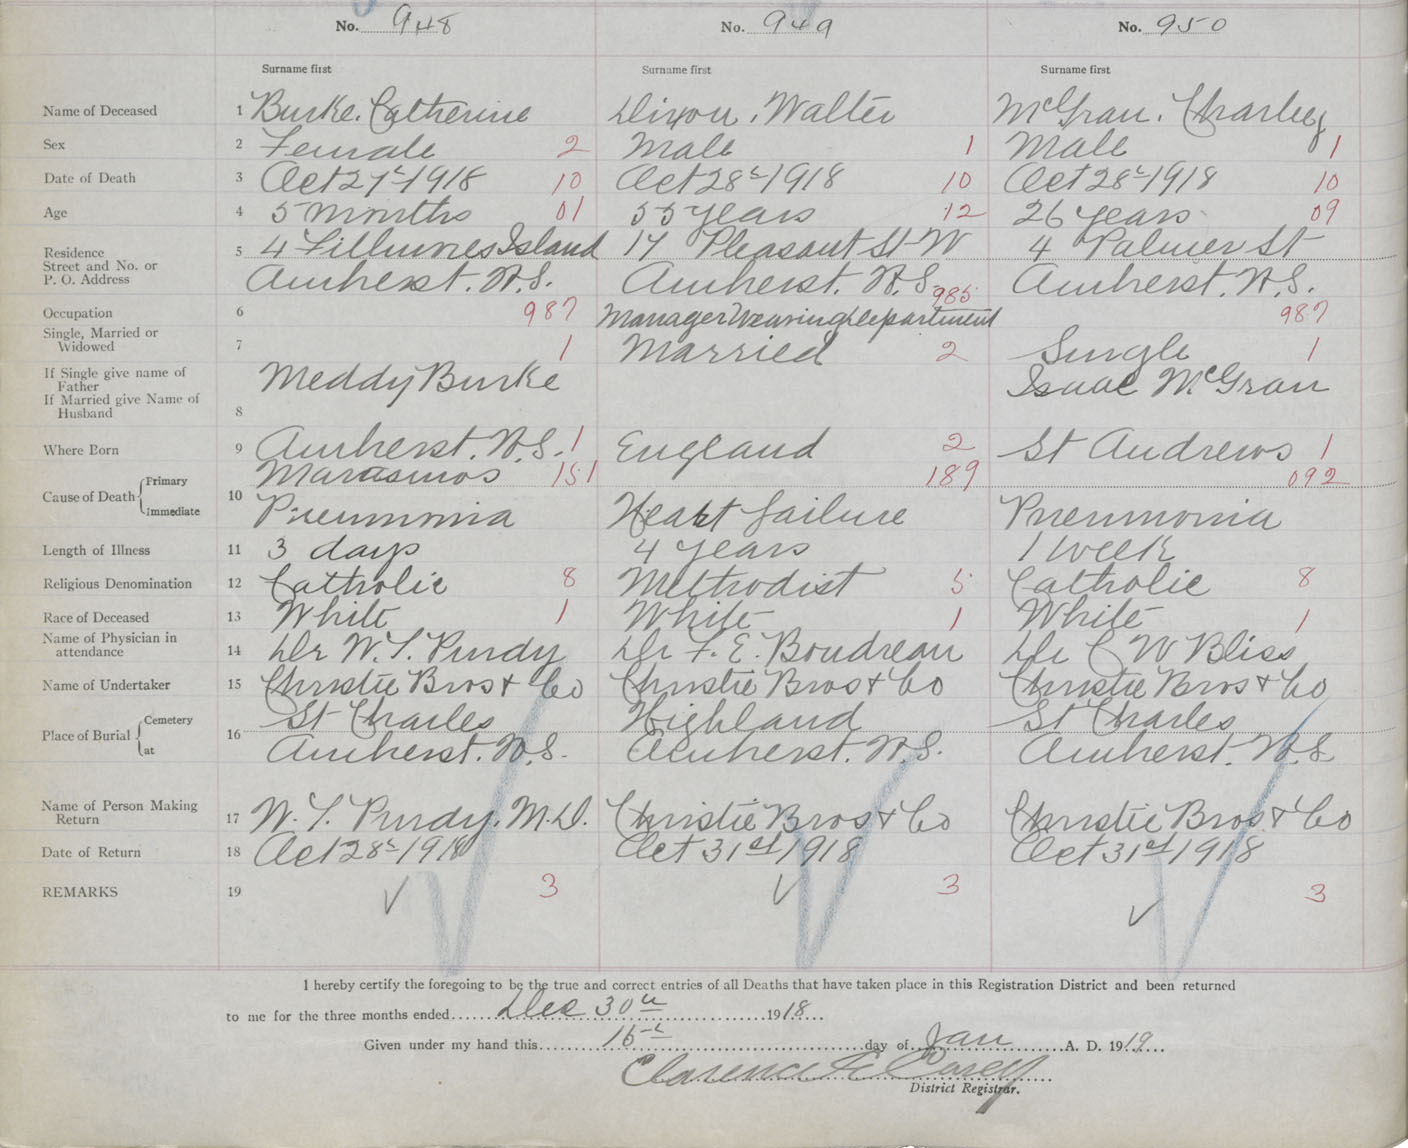 No. 948 No. 949 No. 950
Surname first Surname first Surname first
Name of Deceased 1 Burke, Catherine Dixon, Walter McGran, Charley
Sex 2 Female 2 Male 1 Male 1
Date of Death 3 Oct 27th 1918 10 Oct 28th 1918 10 Oct 28th 1918 10
Age 4 5 months 01 55 years 12 26 years 09
Residence
Street and No. or 5 4 Fillmores Island 17 Pleasant St W 4 Palmer St
P. O. Address Amherst. N.S. Amherst. N.S. Amherst. N.S.
Occupation 6 987 Manager Wearing Department 985 987
Single, Married or
Widowed 7 1 Married 2 Single 1
If Single give name of
Father Meddy Burke Isaac McGran
If Married give Name of
Husband 8
Where Born 9 Amherst. N.S. 1 England 2 St Andrews 1
Cause of Death Primary Marasmos 151 189 092
Immediate 10 Pneumonia Heart failure Pneumonia
Length of Illness 11 3 days 4 years 1 week
Religious Denomination 12 Catholic 8 Methodist 5 Catholic 8
Race of Deceased 13 White 1 White 1 White 1
Name of Physician in
attendance 14 Dr W. T. Purdy Dr F. E. Boudreau Dr C W Bliss
Name of Undertaker 15 Christie Bros & Co Christie Bros & Co Christie Bros & Co
Place of Burial Cemetery 16 St Charles Highland St Charles
at Amherst. N.S. Amherst. N.S. Amherst. N.S
Name of Person Making
Return 17 W. T. Purdy, M.D. Christie Bros & Co Christie Bros & Co
Date of Return 18 Oct 28th 1918 Oct 31st 1918 Oct 31st 1918
REMARKS 19 3 3 3
I hereby certify the foregoing to be the true and correct entries of all Deaths that have taken place in this Registration District and been returned
to me for the three months ended Dec 30th 1918
Given under my hand this 15th day of Jan A. D. 1919
Clarence
District Registrar.